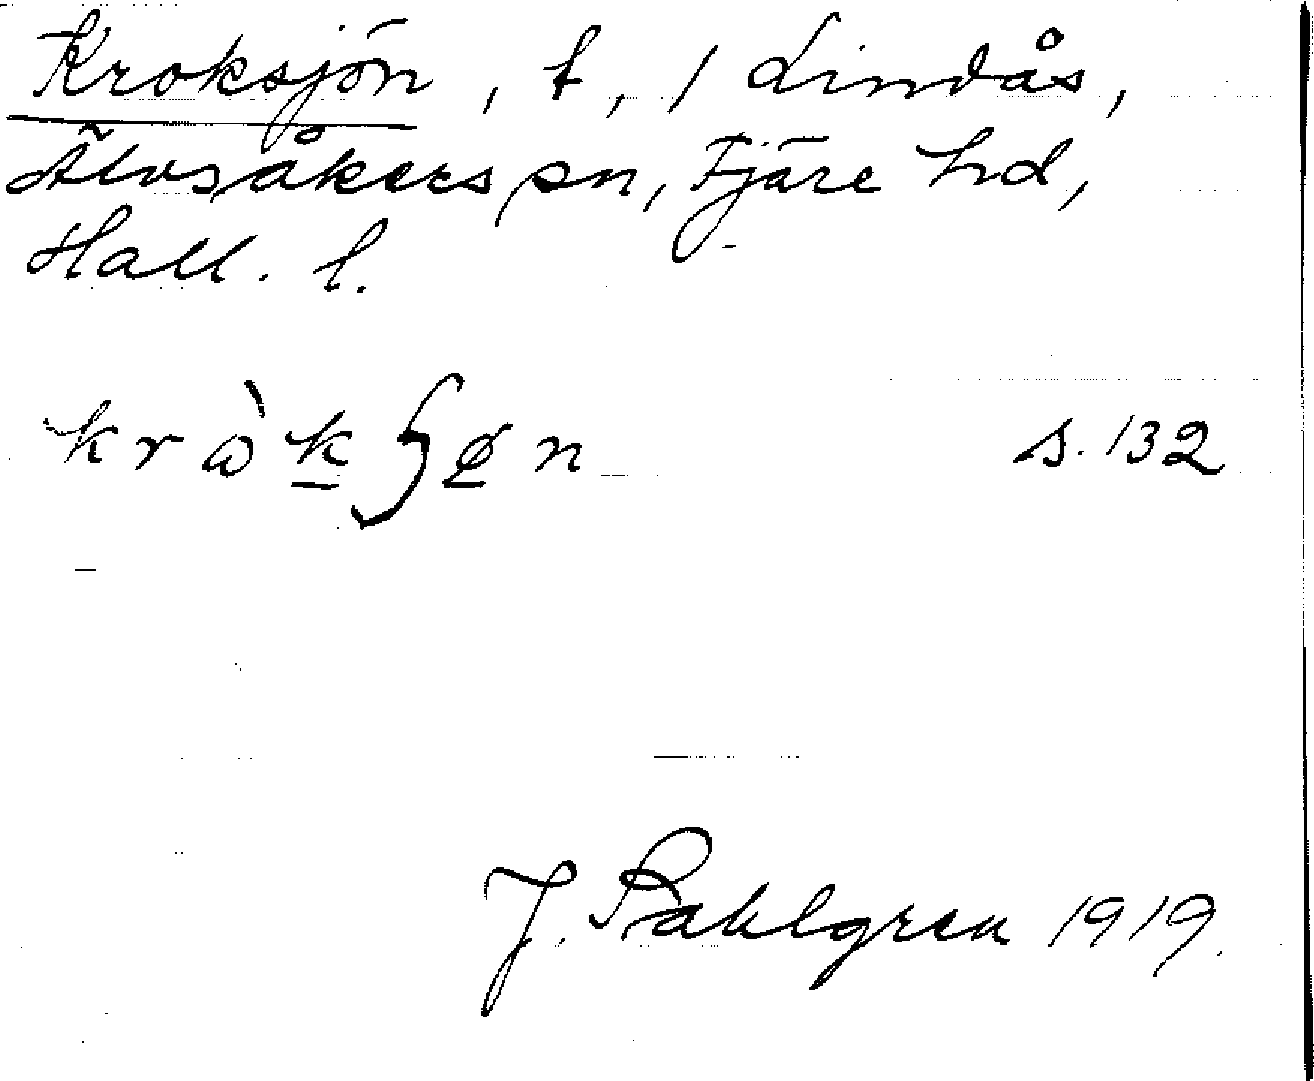 Kroksjön, t, / Lindås,
Älvsåkers sn, Fjäre hd,
Hall. l.
kròkʃøn s. 132
J. Sahlgren 1919.